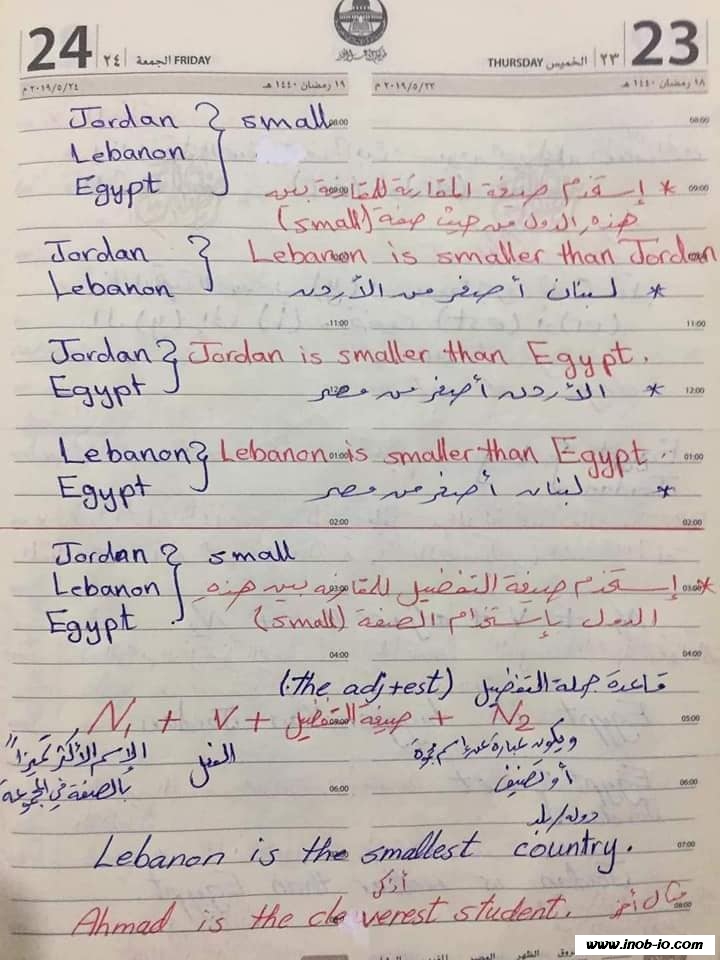 24 ٢٤ الجمعة FRIDAY
THURSDAY الخميس ٢٣ 23
٢٠١٩/٥/٢٤ م ١٩ رمضان ١٤٤٠ هـ
٢٠١٩/٥/٢٣ م ١٨ رمضان ١٤٤٠ هـ
Jordan } small 08:00 08:00
Lebanon
Egypt
* إستخدم صيغة المقارنة للمقارنة بين 09:00 09:00
هذه الدول من حيث صفة (small)
Jordan } Lebanon is smaller than Jordan
Lebanon
* لبنان أصغر من الأردن
11:00 11:00
Jordan } Jordan is smaller than Egypt.
Egypt
* الأردن أصغر من مصر 12:00
Lebanon } Lebanon is smaller than Egypt. 01:00 01:00
Egypt
* لبنان أصغر من مصر
02:00 02:00
Jordan } small
Lebanon
Egypt
* إستخدم صيغة التفضيل للمقارنة بين هذه 03:00 03:00
الدول بإستخدام الصفة (small)
04:00 04:00
قاعدة جملة التفضيل (The adj+est.)
N1 + V + صيغة التفضيل + N2 05:00
الاسم الأكثر تميزاً
بالصفة في المجموعة
الفعل
ويكون عبارة عن إسم مجموعة
أو تصنيف
دولة/بلد
06:00 06:00
Lebanon is the smallest country. 07:00
أذكى
Ahmad is the cleverest student. مثال آخر 08:00
www.inob-io.com